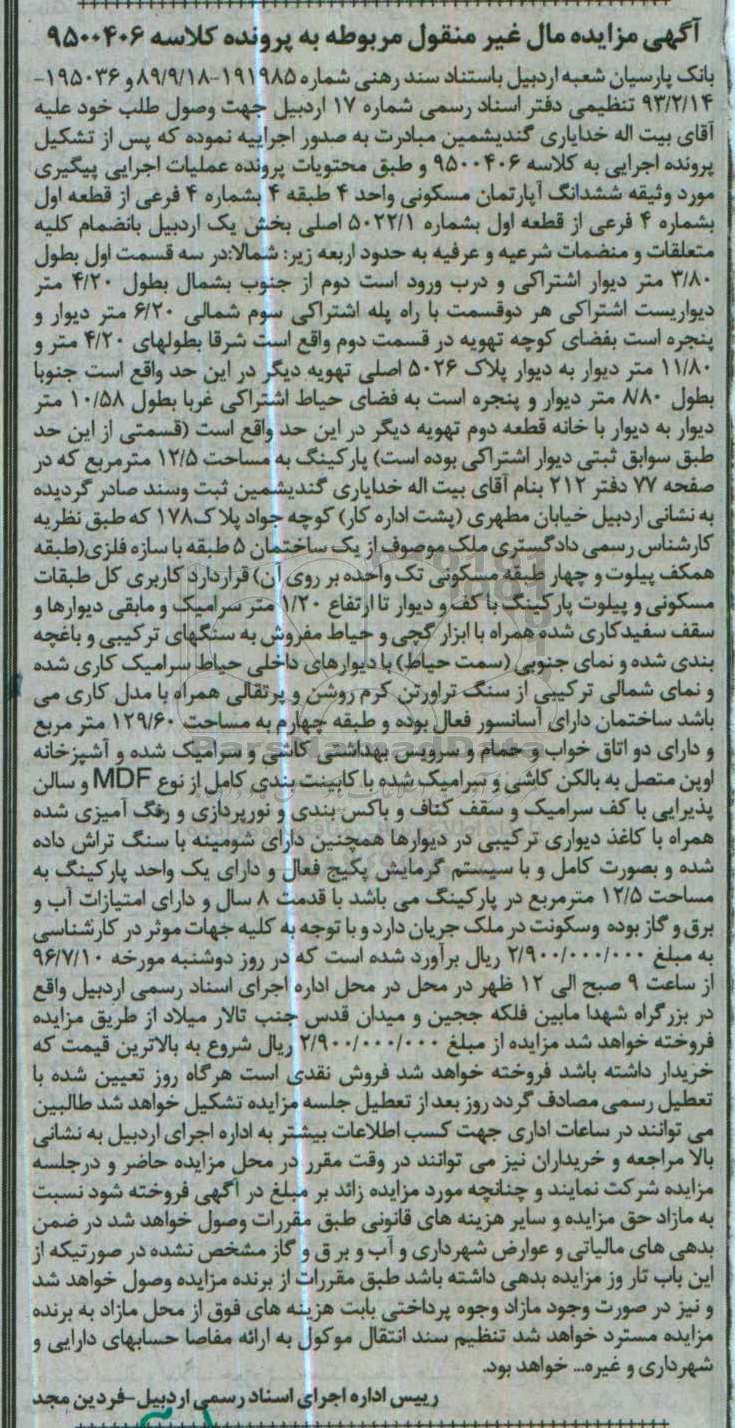 آگهی مزایده مال غیر منقول مربوطه به پرونده کلاسه ۹۵۰۰۴۰۶
بانک پارسیان شعبه اردبیل باستناد سند رهنی شماره ۱۹۱۹۸۵-۸۹/۹/۱۸ و ۱۹۵۰۳۶-
۹۳/۲/۱۴ تنظیمی دفتر اسناد رسمی شماره ۱۷ اردبیل جهت وصول طلب خود علیه
آقای بیت اله خدایاری گندیشمین مبادرت به صدور اجراییه نموده که پس از تشکیل
پرونده اجرایی به کلاسه ۹۵۰۰۴۰۶ و طبق محتویات پرونده عملیات اجرایی پیگیری
مورد وثیقه ششدانگ آپارتمان مسکونی واحد ۴ طبقه ۴ بشماره ۴ فرعی از قطعه اول
بشماره ۴ فرعی از قطعه اول بشماره ۵۰۲۲/۱ اصلی بخش یک اردبیل بانضمام کلیه
متعلقات و منضمات شرعیه و عرفیه به حدود اربعه زیر: شمالا:در سه قسمت اول بطول
۳/۸۰ متر دیوار اشتراکی و درب ورود است دوم از جنوب بشمال بطول ۴/۲۰ متر
دیواریست اشتراکی هر دوقسمت با راه پله اشتراکی سوم شمالی ۶/۲۰ متر دیوار و
پنجره است بفضای کوچه تهویه در قسمت دوم واقع است شرقا بطولهای ۴/۲۰ متر و
۱۱/۸۰ متر دیوار به دیوار پلاک ۵۰۲۶ اصلی تهویه دیگر در این حد واقع است جنوبا
بطول ۸/۸۰ متر دیوار و پنجره است به فضای حیاط اشتراکی غربا بطول ۱۰/۵۸ متر
دیوار به دیوار با خانه قطعه دوم تهویه دیگر در این حد واقع است (قسمتی از این حد
طبق سوابق ثبتی دیوار اشتراکی بوده است) پارکینگ به مساحت ۱۲/۵ مترمربع که در
صفحه ۷۷ دفتر ۲۱۲ بنام آقای بیت اله خدایاری گندیشمین ثبت وسند صادر گردیده
به نشانی اردبیل خیابان مطهری (پشت اداره کار) کوچه جواد پلاک۱۷۸ که طبق نظریه
کارشناس رسمی دادگستری ملک موصوف از یک ساختمان ۵ طبقه با سازه فلزی(طبقه
همکف پیلوت و چهار طبقه مسکونی تک واحده بر روی آن) قراردارد کاربری کل طبقات
مسکونی و پیلوت پارکینگ با کف و دیوار تا ارتفاع ۱/۲۰ متر سرامیک و مابقی دیوارها و
سقف سفیدکاری شده همراه با ابزار گچی و حیاط مفروش به سنگهای ترکیبی و باغچه
بندی شده و نمای جنوبی (سمت حیاط) با دیوارهای داخلی حیاط سرامیک کاری شده
و نمای شمالی ترکیبی از سنگ تراورتن کرم روشن و پرتقالی همراه با مدل کاری می
باشد ساختمان دارای آسانسور فعال بوده و طبقه چهارم به مساحت ۱۲۹/۶۰ متر مربع
و دارای دو اتاق خواب و حمام و سرویس بهداشتی کاشی و سرامیک شده و آشپزخانه
اوپن متصل به بالکن کاشی و سرامیک شده با کابینت بندی کامل از نوع MDF و سالن
پذیرایی با کف سرامیک و سقف کناف و باکس بندی و نورپردازی و رنگ آمیزی شده
همراه با کاغذ دیواری ترکیبی در دیوارها همچنین دارای شومینه با سنگ تراش داده
شده و بصورت کامل و با سیستم گرمایش پکیج فعال و دارای یک واحد پارکینگ به
مساحت ۱۲/۵ مترمربع در پارکینگ می باشد با قدمت ۸ سال و دارای امتیازات آب و
برق و گاز بوده وسکونت در ملک جریان دارد و با توجه به کلیه جهات موثر در کارشناسی
به مبلغ ۲/۹۰۰/۰۰۰/۰۰۰ ریال برآورد شده است که در روز دوشنبه مورخه ۹۶/۷/۱۰
از ساعت ۹ صبح الی ۱۲ ظهر در محل در محل اداره اجرای اسناد رسمی اردبیل واقع
در بزرگراه شهدا مابین فلکه ججین و میدان قدس جنب تالار میلاد از طریق مزایده
فروخته خواهد شد مزایده از مبلغ ۲/۹۰۰/۰۰۰/۰۰۰ ریال شروع به بالاترین قیمت که
خریدار داشته باشد فروخته خواهد شد فروش نقدی است هرگاه روز تعیین شده با
تعطیل رسمی مصادف گردد روز بعد از تعطیل جلسه مزایده تشکیل خواهد شد طالبین
می توانند در ساعات اداری جهت کسب اطلاعات بیشتر به اداره اجرای اردبیل به نشانی
بالا مراجعه و خریداران نیز می توانند در وقت مقرر در محل مزایده حاضر و درجلسه
مزایده شرکت نمایند و چنانچه مورد مزایده زائد بر مبلغ در آگهی فروخته شود نسبت
به مازاد حق مزایده و سایر هزینه های قانونی طبق مقررات وصول خواهد شد در ضمن
بدهی های مالیاتی و عوارض شهرداری و آب و برق و گاز مشخص نشده در صورتیکه از
این باب تا روز مزایده بدهی داشته باشد طبق مقررات از برنده مزایده وصول خواهد شد
و نیز در صورت وجود مازاد وجوه پرداختی بابت هزینه های فوق از محل مازاد به برنده
مزایده مسترد خواهد شد تنظیم سند انتقال موکول به ارائه مفاصا حسابهای دارایی و
شهرداری و غیره... خواهد بود.
رییس اداره اجرای اسناد رسمی اردبیل-فردین مجد